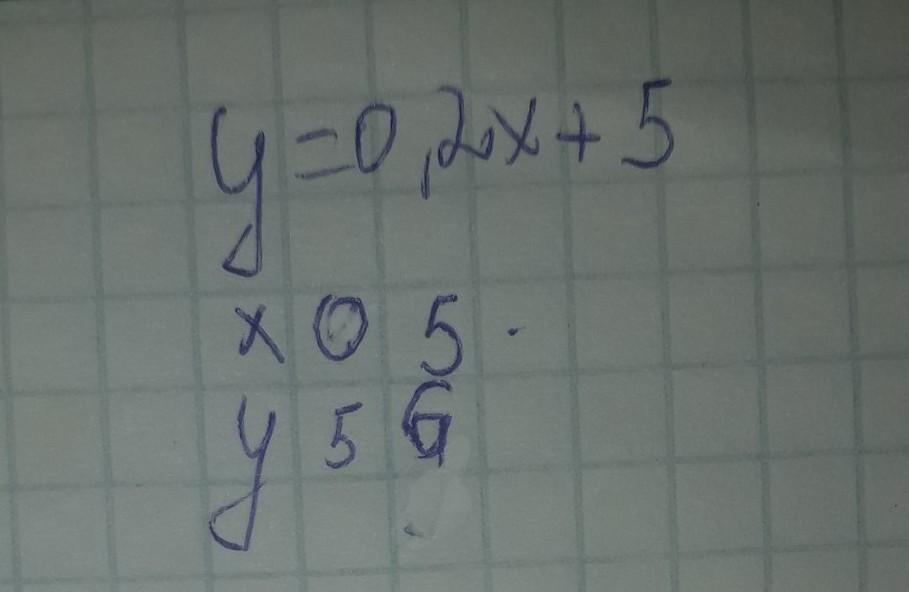 y=0,2x+5
x 0 5
y 5 6